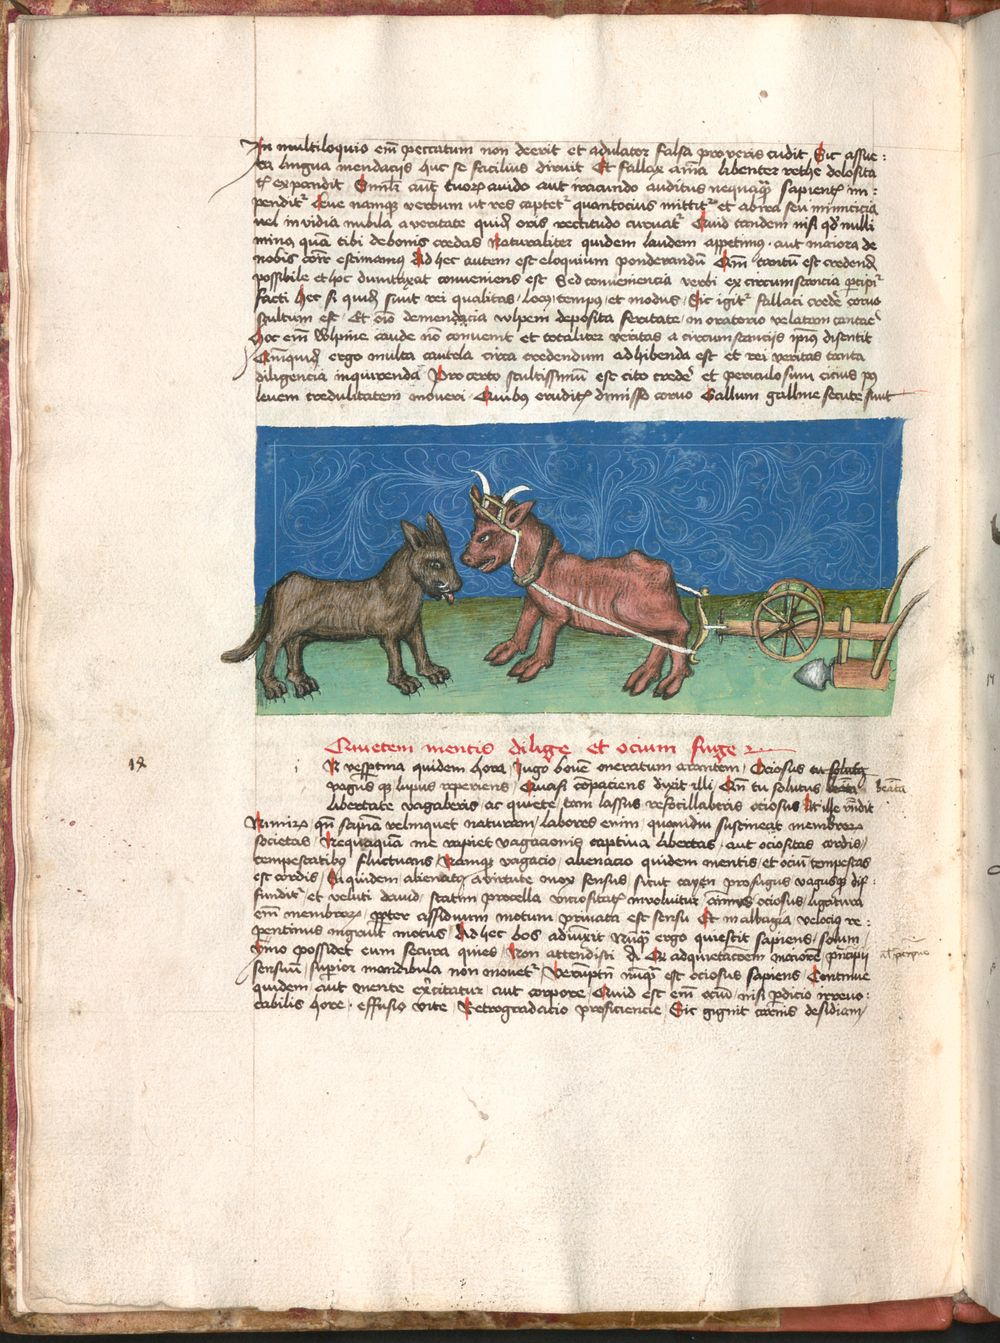 In multiloquio em̄ peccatum non deerit et adulator falsa pro veris cudit Sic assue:
ta lingua mendacijs huc se facilius diruit Et fallax aīa libenter rethe dolosita
tꝭ expandit Simlꝛ aut auido aut iracundo auditus nequaqͣꝫ sapientꝭ im:
penditꝛ Que namqꝫ verbum ut res captetꝛ quantocius mittitꝛ et ab ira seu inimicicia
vel inuidia nubila a veritate quidē oris rectitudo curuatꝛ Quid tandem nisi qd̓ nulli
minus quā tibi de bonis credas Naturaliter quidem laudem appetimus aut maiora de
nobis estimamus Ad hec autem est eloquium ponderandū Em̄ tantū est credend
possibile et hoc dumtaxat conueniens est Sed conueniencia verbi ex circumstancia ꝑcipitꝛ
facti Hec si quidē sunt rei qualitas / locꝫ / tempus / et modus / Sic igitꝛ fallaci credē coruo
stultum est / Et oīo demendacia wlpem deposita feritate / in oratorio velatam cantaē
Hoc em̄ wlpine caude nō conuenit et totaliter veritas a circumstancijs ip̄ius disentit
ergo multa cautela circa credendum adhibenda est et rei veritas tanta
diligencia inquirenda Pro certo stultissimū est cito credē et periculosum cicius
leuem credulitatem moueri Quibus eruditꝭ dimisso coruo Gallum galline secute sunt
Quietem mentis dilige et ocium fuge
18
R vespertina quidem hora / Iugo bouē oneratum arantem / Ociosus
vagus qꝫ lupus reperiens Quasi cōpaciens dixit illi / Em̄ tu solutus beata
libertate vagaberis ac quiete / tam lassus refocillaberis ociosus At ille rn̄dit
qn̄ sapīam relinquet naturam / labores enim quamdiu sustineat membroꝝ
societas / Nequaquā me rapiet vagacionis captiua libertas aut ociositas cordis /
tempestatibꝫ fluctuans Namqꝫ vagacio / alienacio quidem mentis / et ociū tempestas
est cordis / Ea quidem alienatꝫ a virtute mox sensus / sicut cayn profugus vagusqꝫ dif:
funditꝛ et veluti dauid / statim procella viciositatꝭ inuoluitur animꝫ ociosus / ligatura
em̄ membroꝝ ꝓpter assiduum motum priuata est sensu Et velociꝫ re:
pentinus ingruit motus / Ad hec bos adiunxit Nūqͣꝫ ergo quiescit sapiens / solum /
ymo possidet eum secura quies Non attendisti qͣ ꝙ adquietacōem maiorē pͥncipij
sensuū / suꝑior mandibula non mouetꝛ numqͣꝫ est ociosus sapiens Continue
quidem aut mente exͤrcitatur aut corpore / Quid est em̄ ociū / nisi ꝑdicio irreuo:
cabilis hore / effusio vite / Retrogradatio proficiencie / Sic gignit carnis desidiam /